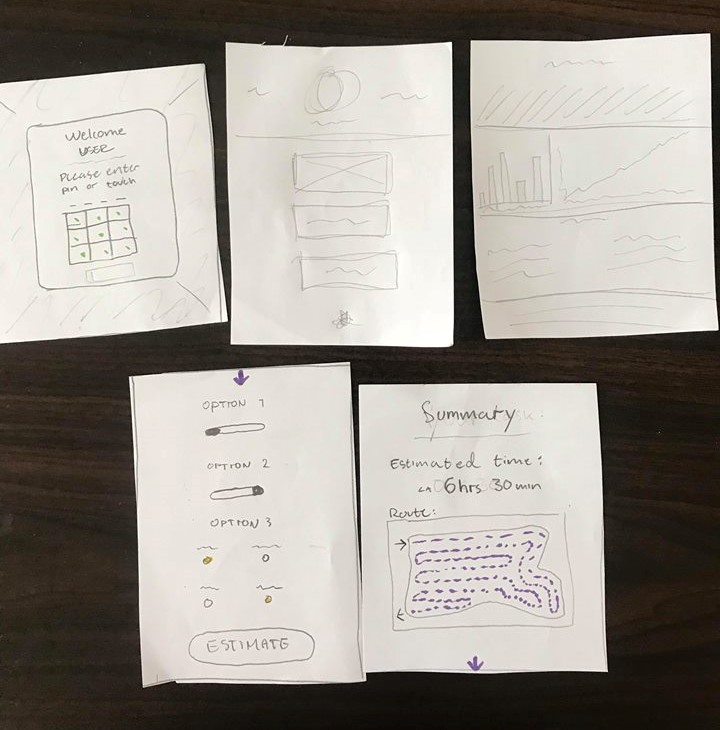 Welcome
USER
Please enter
pin or touch
OPTION 1
OPTION 2
OPTION 3
ESTIMATE
Summary
Estimated time:
6hrs 30min
Route: